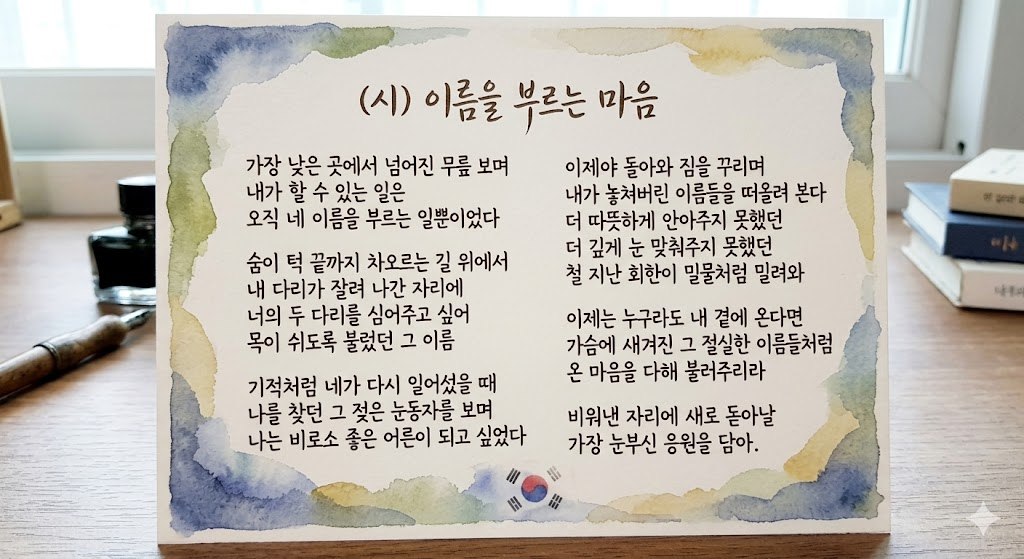 (시) 이름을 부르는 마음
가장 낮은 곳에서 넘어진 무릎 보며
내가 할 수 있는 일은
오직 네 이름을 부르는 일뿐이었다
숨이 턱 끝까지 차오르는 길 위에서
내 다리가 잘려 나간 자리에
너의 두 다리를 심어주고 싶어
목이 쉬도록 불렀던 그 이름
기적처럼 네가 다시 일어섰을 때
나를 찾던 그 젖은 눈동자를 보며
나는 비로소 좋은 어른이 되고 싶었다
이제야 돌아와 짐을 꾸리며
내가 놓쳐버린 이름들을 떠올려 본다
더 따뜻하게 안아주지 못했던
더 깊게 눈 맞춰주지 못했던
철 지난 회한이 밀물처럼 밀려와
이제는 누구라도 내 곁에 온다면
가슴에 새겨진 그 절실한 이름들처럼
온 마음을 다해 불러주리라
비워낸 자리에 새로 돋아날
가장 눈부신 응원을 담아.